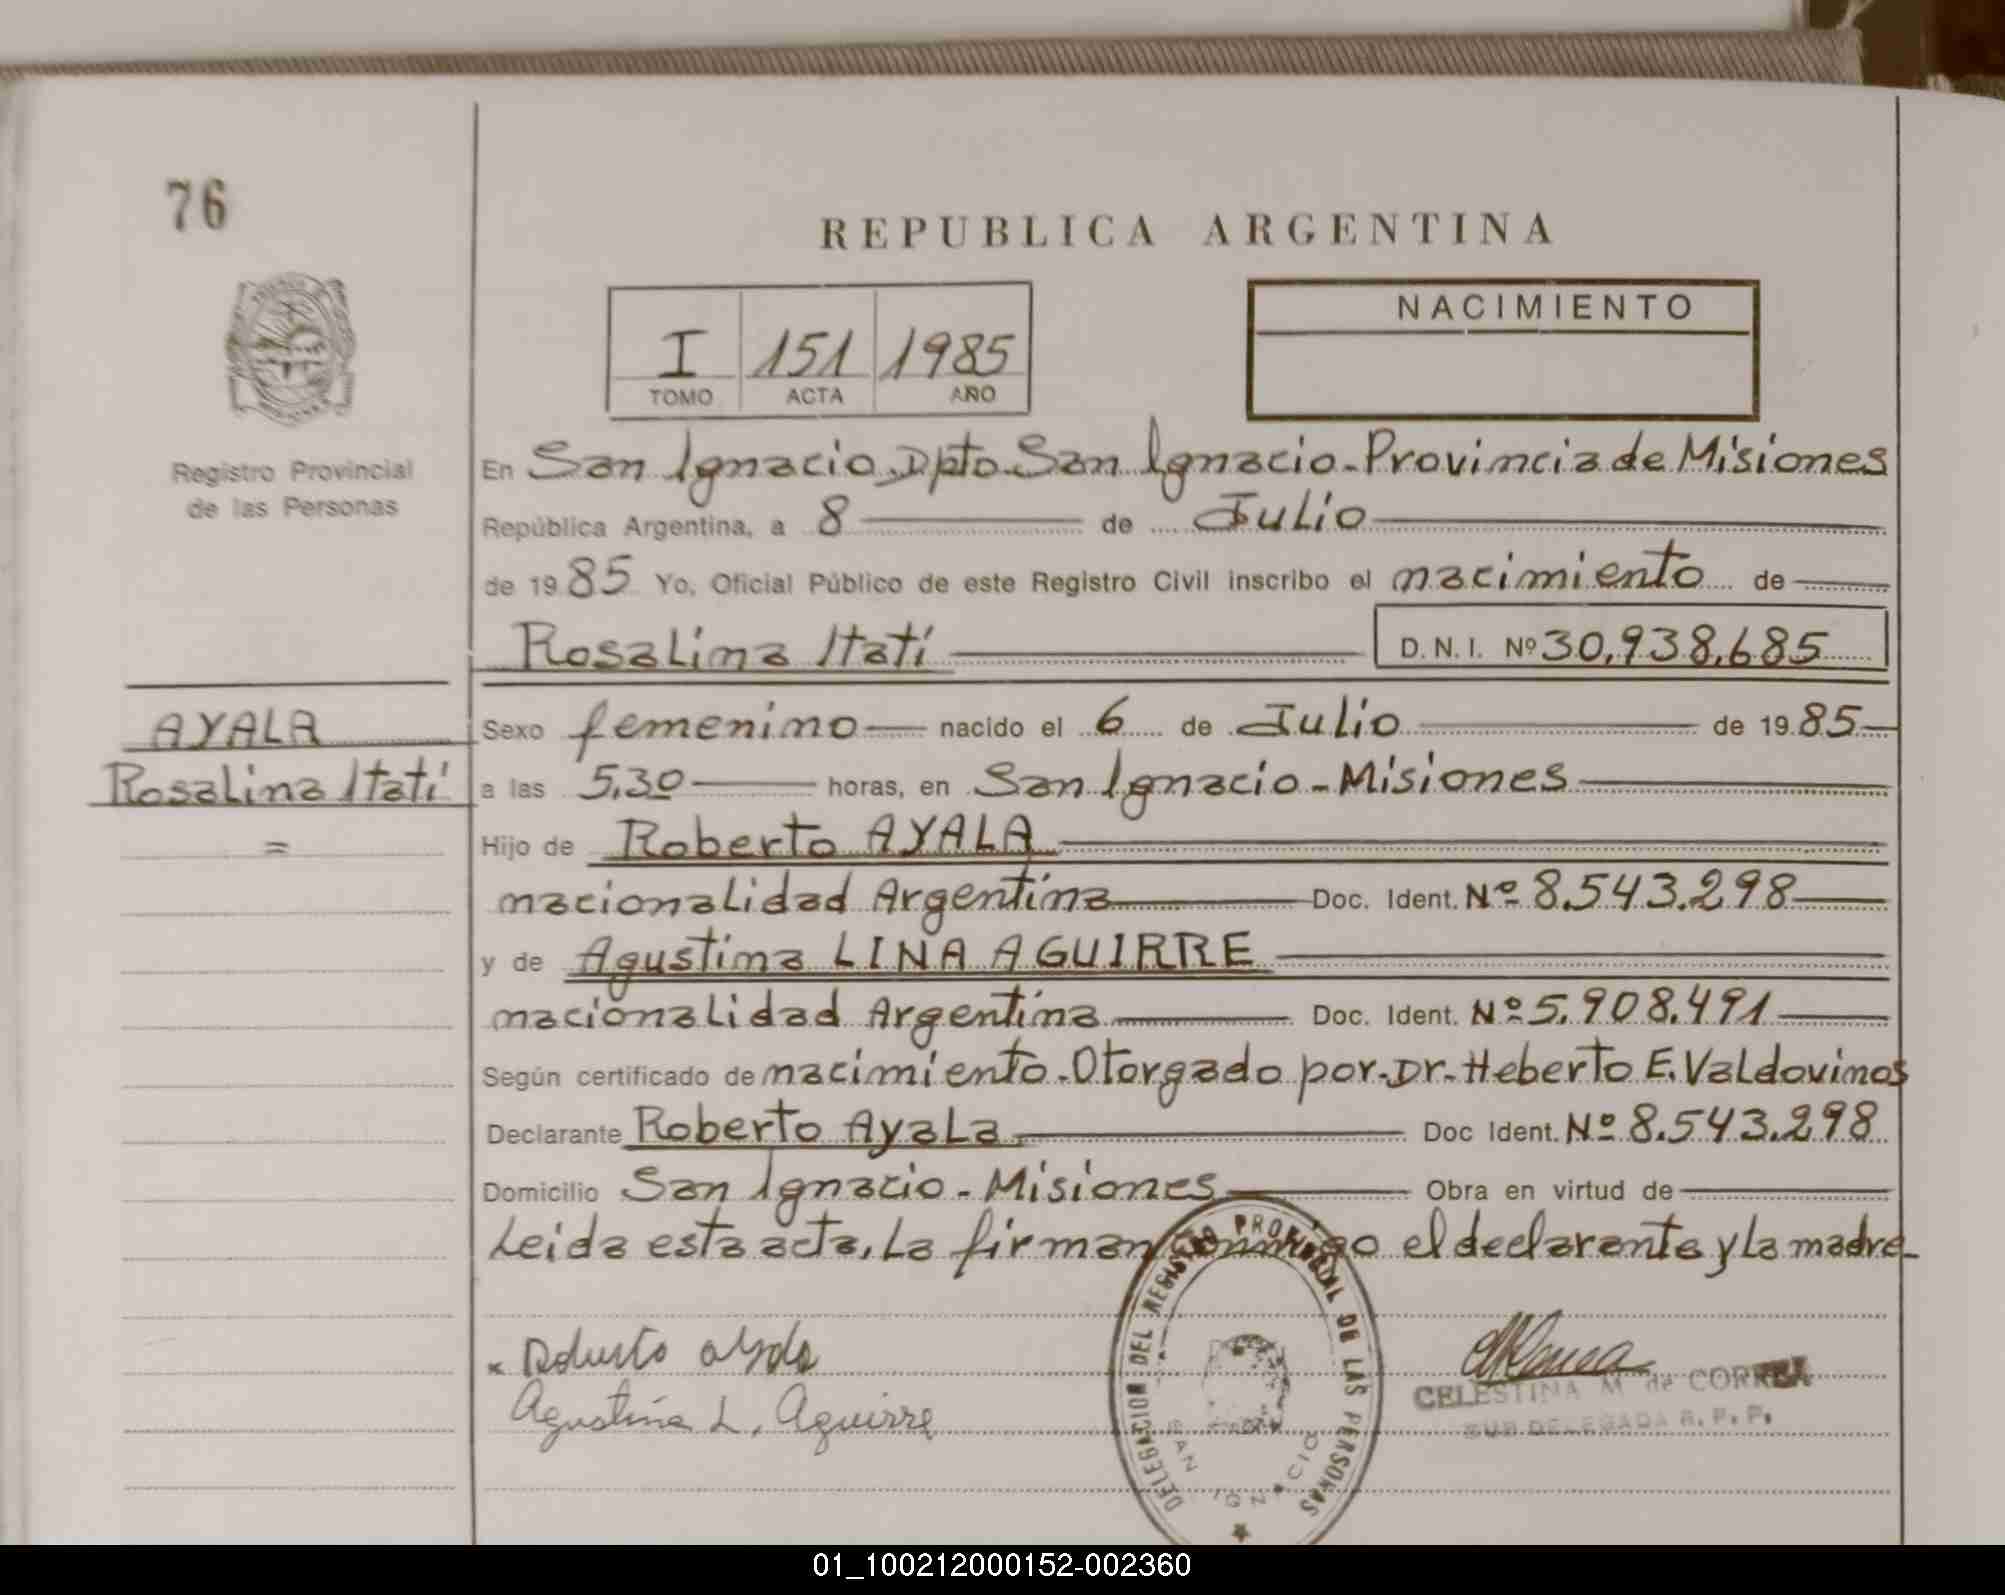 76
REPUBLICA ARGENTINA
NACIMIENTO
I 151 1985
TOMO ACTA AÑO
Registro Provincial
de las Personas
En San Ignacio. Dpto. San Ignacio-Provincia de Misiones
República Argentina, a 8 de Julio
de 1985 Yo, Oficial Público de este Registro Civil inscribo el nacimiento de
Rosalina Itatí D.N.I. Nº 30.938.685
AYALA
Rosalina Itatí
=
Sexo femenino nacido el 6 de Julio de 1985
a las 5,30 horas, en San Ignacio - Misiones
Hijo de Roberto AYALA
nacionalidad Argentina Doc. Ident. Nº 8.543.298
y de Agustina LINA AGUIRRE
nacionalidad Argentina Doc. Ident. Nº 5.908.491
Según certificado de nacimiento. Otorgado por. Dr. Heberto E. Valdovinos
Declarante Roberto Ayala Doc Ident. Nº 8.543.298
Domicilio San Ignacio - Misiones Obra en virtud de
Leida esta acta, la firman conmigo el declarante y la madre
x Roberto ayala
Agustina L. Aguirre
DELEGACION DEL REGISTRO PROVINCIAL DE LAS PERSONAS
SAN IGNACIO
CELESTINA M de CORREA
SUB DELEGADA R. P. P.
01_100212000152-002360